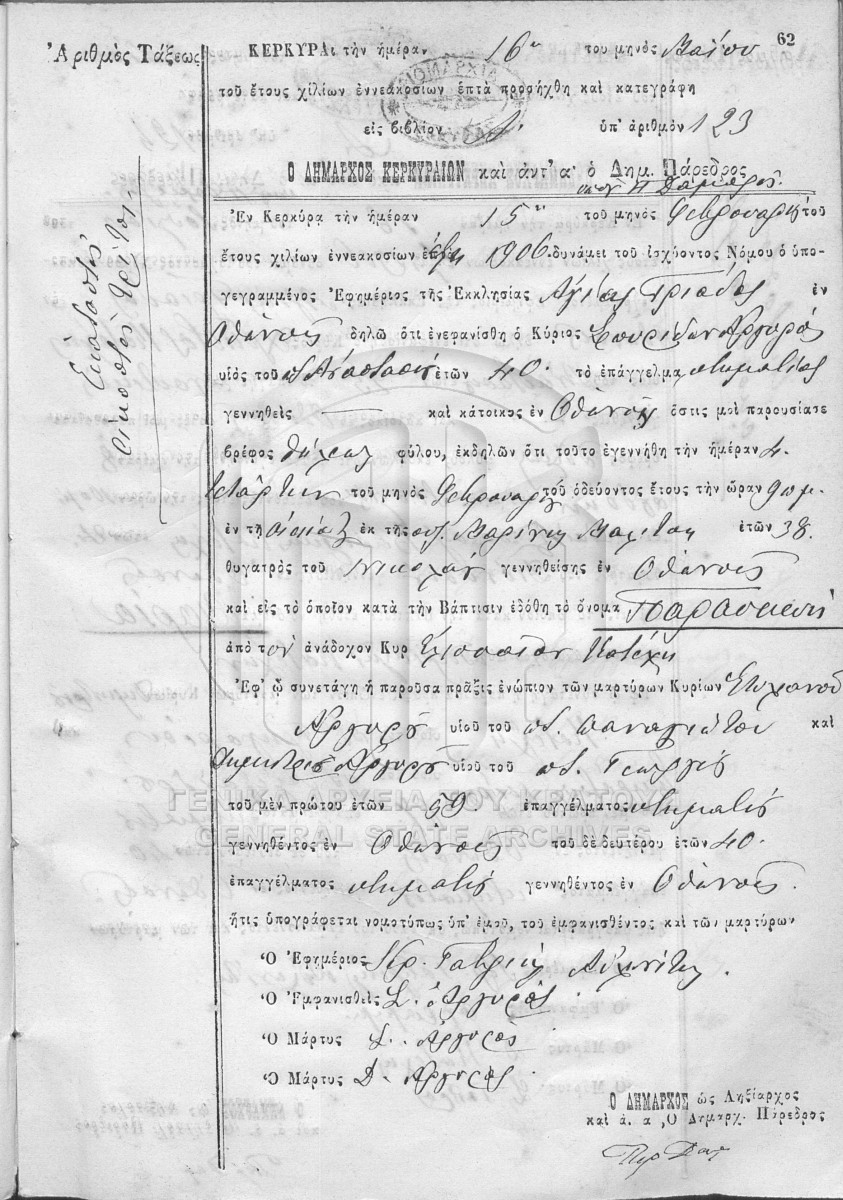 62
Ἀριθμὸς Τάξεως
ΚΕΡΚΥΡΑι τὴν ἡμέραν 16ην του μηνὸς Μαΐου
τοῦ ἔτους χιλίων ἐννεακοσίων ἑπτὰ προσήχθη καὶ κατεγράφη
εἰς βιβλίον ὑπ' ἀριθμὸν 123
Ο ΔΗΜΑΡΧΟΣ ΚΕΡΚΥΡΑΙΩΝ καὶ ἀντ' α' ὁ Δημ. Πάρεδρος
Ἐν Κερκύρᾳ τὴν ἡμέραν 15ην τοῦ μηνὸς Φεβρουαρίου τοῦ
ἔτους χιλίων ἐννεακοσίων ἕξη 1906 δυνάμει τοῦ ἰσχύοντος Νόμου ὁ ὑπο-
γεγραμμένος Ἐφημέριος τῆς Ἐκκλησίας Ἁγίας Τριάδος ἐν
Ὀθωνοῖς δηλῶ ὅτι ἐνεφανίσθη ὁ Κύριος Σπυρίδων Ἀργυρός
υἱὸς τοῦ Ἀναστασίου ἐτῶν 40 τὸ ἐπάγγελμα κτηματίας
γεννηθεὶς καὶ κάτοικος ἐν Ὀθωνοῖς ὅστις μοὶ παρουσίασε
βρέφος θήλεος φύλου, ἐκδηλῶν ὅτι τοῦτο ἐγεννήθη τὴν ἡμέραν 4
τετάρτην τοῦ μηνὸς Φεβρουαρίου τοῦ ὁδεύοντος ἔτους τὴν ὥραν 9 π μ.
ἐν τῇ οἰκίᾳ ἐκ τῆς συζ. Μαρίνης ἐτῶν 38
θυγατρὸς τοῦ Νικολάου γεννηθείσης ἐν Ὀθωνοῖς
καὶ εἰς τὸ ὁποῖον κατὰ τὴν Βάπτισιν ἐδόθη τὸ ὄνομα Παρασκευὴ
ἀπὸ τὸν ἀνάδοχον Κυρ Κατέχη
Ἐφ' ᾧ συνετάγη ἡ παροῦσα πρᾶξις ἐνώπιον τῶν μαρτύρων Κυρίων Στυλιανοῦ
Ἀργυροῦ υἱοῦ τοῦ ποτ. Παναγιώτου καὶ
Δημητρίου Ἀργυροῦ υἱοῦ τοῦ ποτ. Γεωργίου
ΓΕΝΙΚΑ ΑΡΧΕΙΑ ΤΟΥ ΚΡΑΤΟΥΣ
τοῦ μὲν πρώτου ἐτῶν 59 ἐπαγγέλματος κτηματίου
GENERAL STATE ARCHIVES
γεννηθέντος ἐν Ὀθωνοῖς τοῦ δὲ δευτέρου ἐτῶν 40.
ἐπαγγέλματος κτηματίου γεννηθέντος ἐν Ὀθωνοῖς.
ἥτις ὑπογράφεται νομοτύπως ὑπ' ἐμοῦ, τοῦ ἐμφανισθέντος καὶ τῶν μαρτύρων
Ὁ Ἐφημέριος Γαβριὴλ
Ὁ Ἐμφανισθεὶς Σ. Ἀργυρός
Ὁ Μάρτυς Σ. Ἀργυρός
Ὁ Μάρτυς Δ. Ἀργυρός
Ο ΔΗΜΑΡΧΟΣ ὡς Ληξίαρχος
καὶ ἀ. α, Ὁ Δημαρχ. Πάρεδρος